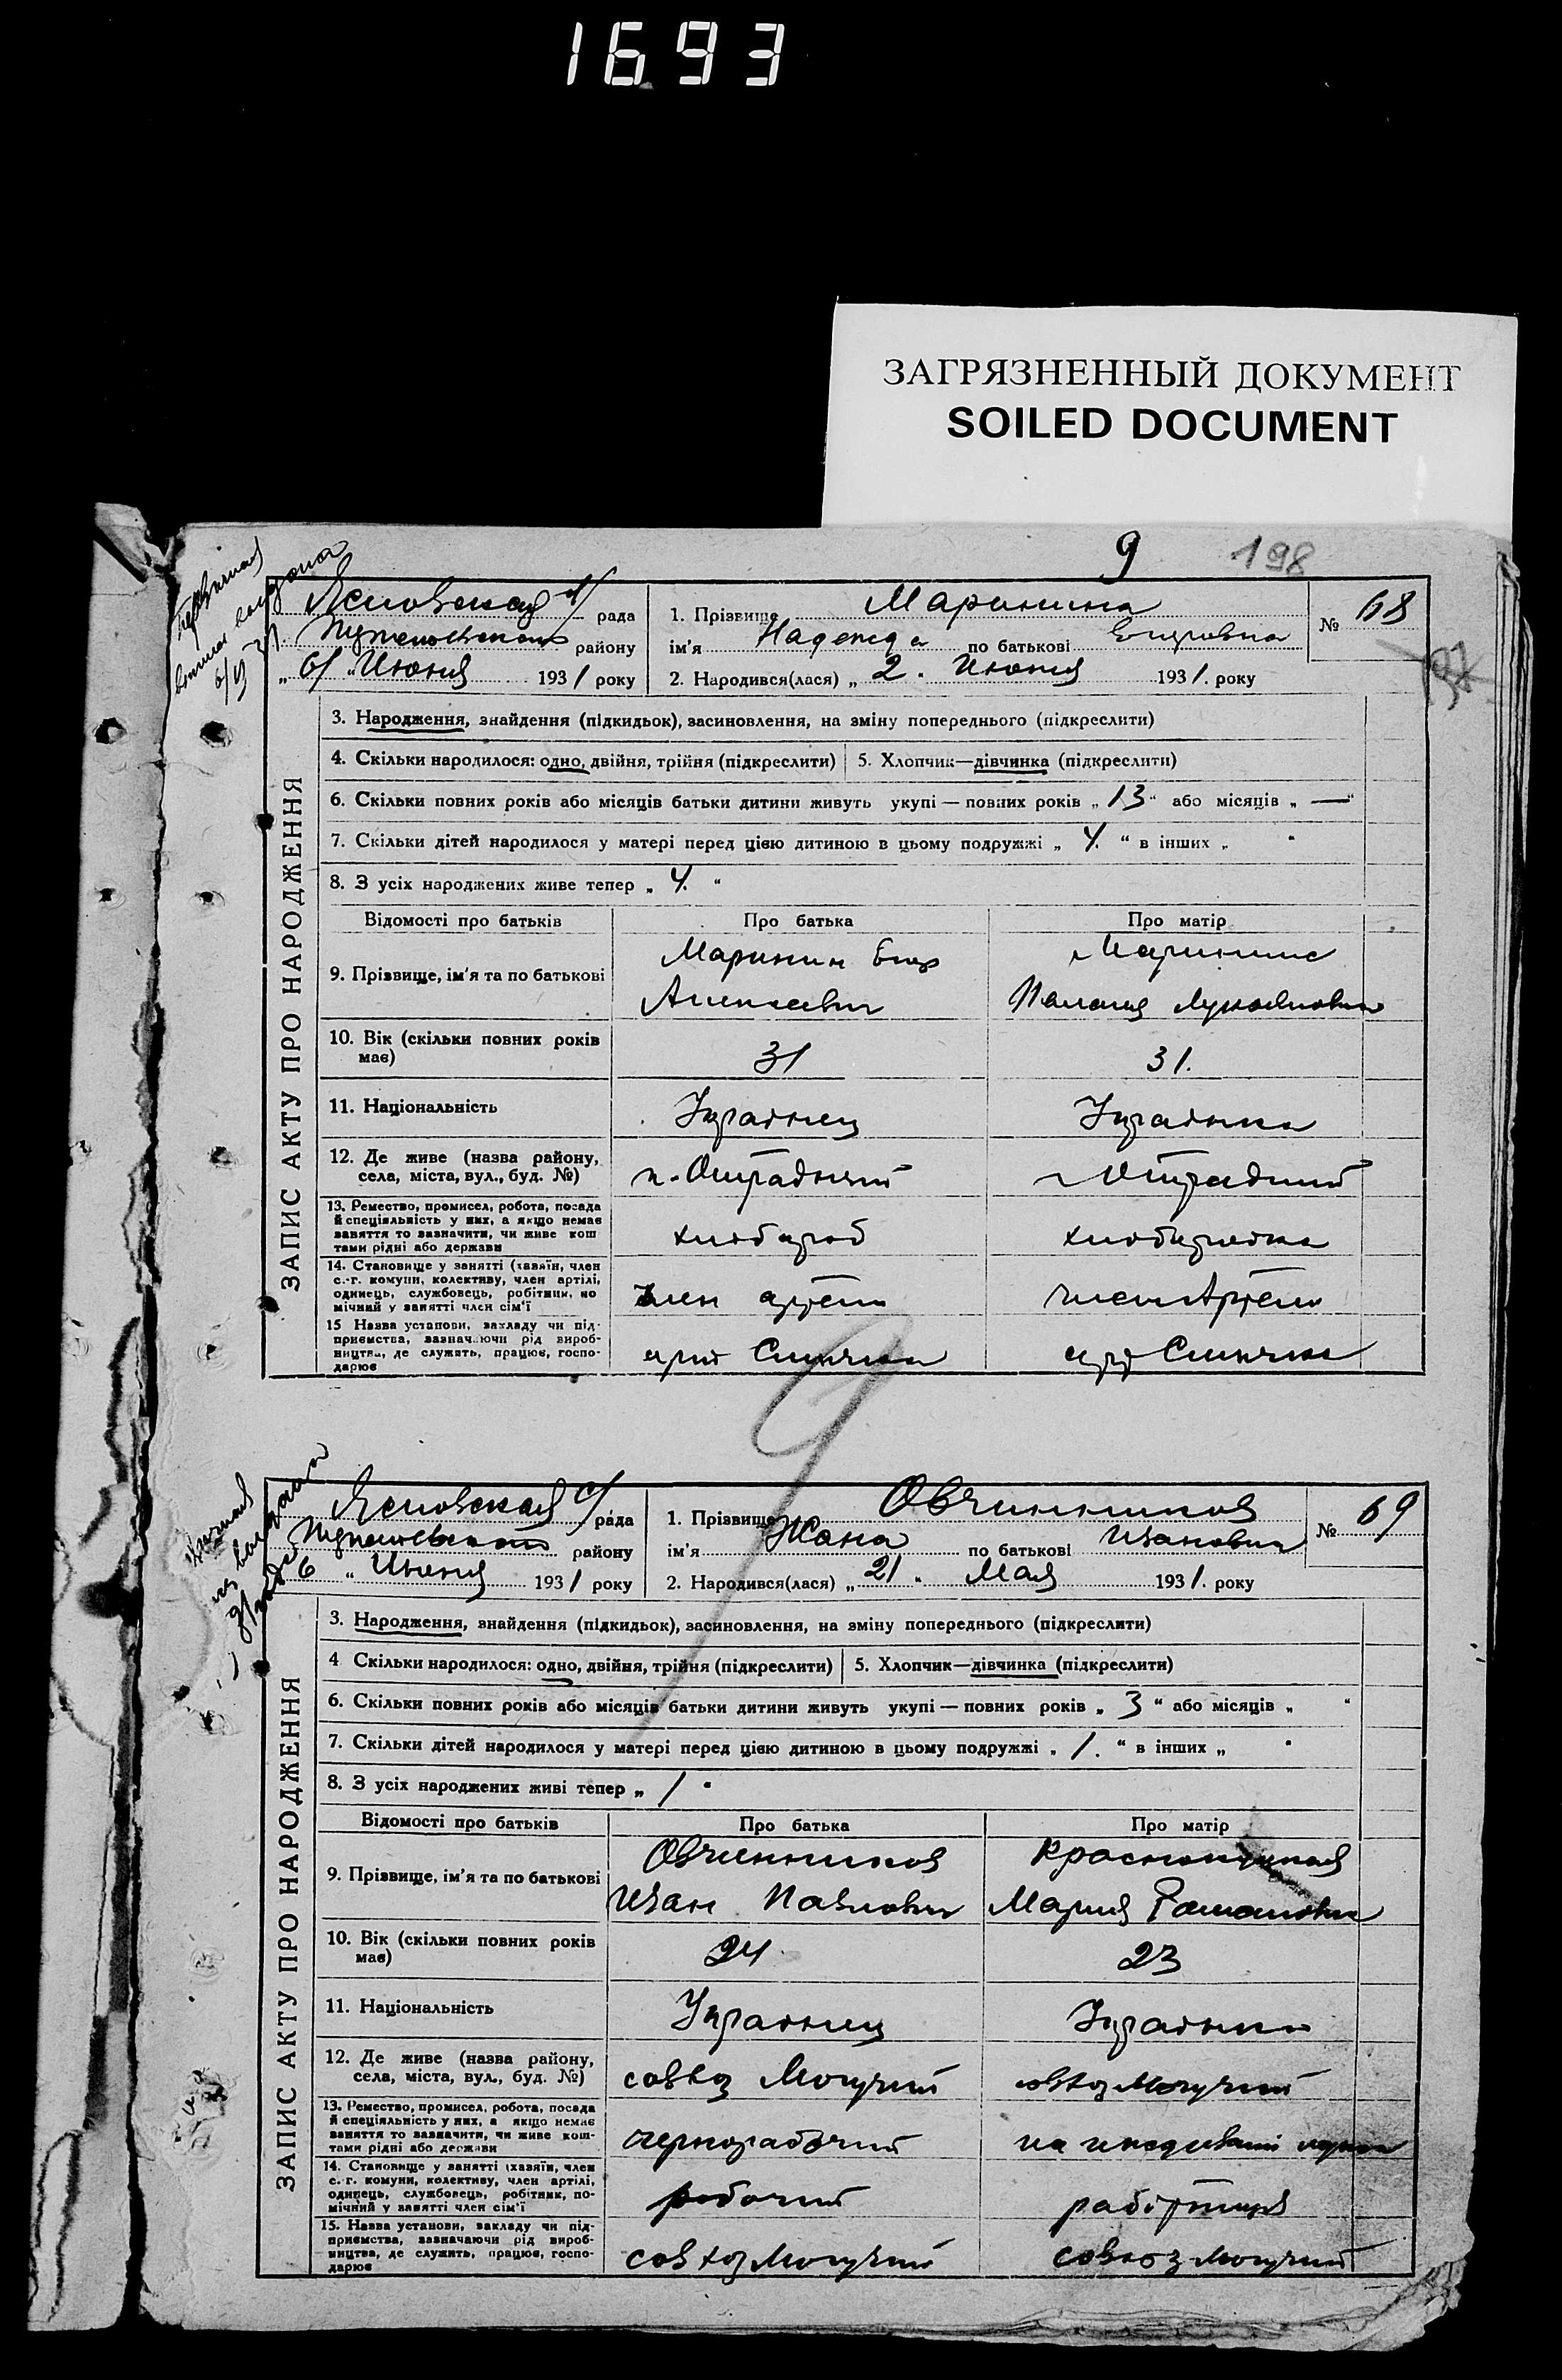 1693
ЗАГРЯЗНЕННЫЙ ДОКУМЕНТ
SOILED DOCUMENT
9 198
рада
району
"6/" Июня 1931 року
1. Прізвище Маринина
ім'я Надежда по батькові Егоровна
2. Народився(лася) „2. Июня 1931. року
№ 68
ЗАПИС АКТУ ПРО НАРОДЖЕННЯ
3. Народження, знайдення (підкидьок), засиновлення, на зміну попереднього (підкреслити)
4. Скільки народилося: одно, двійня, трійня (підкреслити) 5. Хлопчик—дівчинка (підкреслити)
6. Скільки повних років або місяців батьки дитини живуть укупі — повних років „13“ або місяців „—“
7. Скільки дітей народилося у матері перед цією дитиною в цьому подружжі „4.“ в інших „ “
8. З усіх народжених живе тепер „4.“
Відомості про батьків Про батька Про матір
9. Прізвище, ім'я та по батькові
Маринин Егор
Алексеевич
Маринина
10. Вік (скільки повних років має) 31 31.
11. Національність Украинец Украинка
12. Де живе (назва району, села, міста, вул., буд. №) п. Отрадний Отрадний
13. Ремество, промисел, робота, посада
й спеціяльність у них, а якщо немає
заняття то зазначити, чи живе кош
тами рідні або держави
хлебороб
14. Становище у занятті (хазяїн, член
с.-г. комуни, колективу, член артілі,
одинець, службовець, робітник, по
мічний у занятті член сім'ї
член артели член Артели
15 Назва установи, закладу чи під-
приємства, зазначаючи рід вироб-
ництва, де служить, працює, госпо-
дарює
рада
району
6 „ Июня 1931 року
1. Прізвище Овчинникова
ім'я Жана по батькові Ивановна
2. Народився(лася) „21“ Мая 1931. року
№ 69
ЗАПИС АКТУ ПРО НАРОДЖЕННЯ
3. Народження, знайдення (підкидьок), засиновлення, на зміну попереднього (підкреслити)
4 Скільки народилося: одно, двійня, трійня (підкреслити) 5. Хлопчик—дівчинка (підкреслити)
6. Скільки повних років або місяців батьки дитини живуть укупі — повних років „3“ або місяців „ “
7. Скільки дітей народилося у матері перед цією дитиною в цьому подружжі „1.“ в інших „ “
8. З усіх народжених живі тепер „1“
Відомості про батьків Про батька Про матір
9. Прізвище, ім'я та по батькові
Овчинников
Иван Павлович
Мария Романовна
10. Вік (скільки повних років має) 24 23
11. Національність Украинец Украинка
12. Де живе (назва району, села, міста, вул., буд. №) совхоз Могучий совхоз Могучий
13. Ремество, промисел, робота, посада
й спеціяльність у них, а якщо немає
заняття то зазначити, чи живе кош-
тами рідні або держави
чернорабочий
14. Становище у занятті (хазяїн, член
с.-г. комуни, колективу, член артілі,
одинець, службовець, робітник, по-
мічний у занятті член сім'ї
рабочий работница
15. Назва установи, закладу чи під-
приємства, зазначаючи рід вироб-
ництва, де служить, працює, госпо-
дарює
совхоз Могучий совхоз Могучий